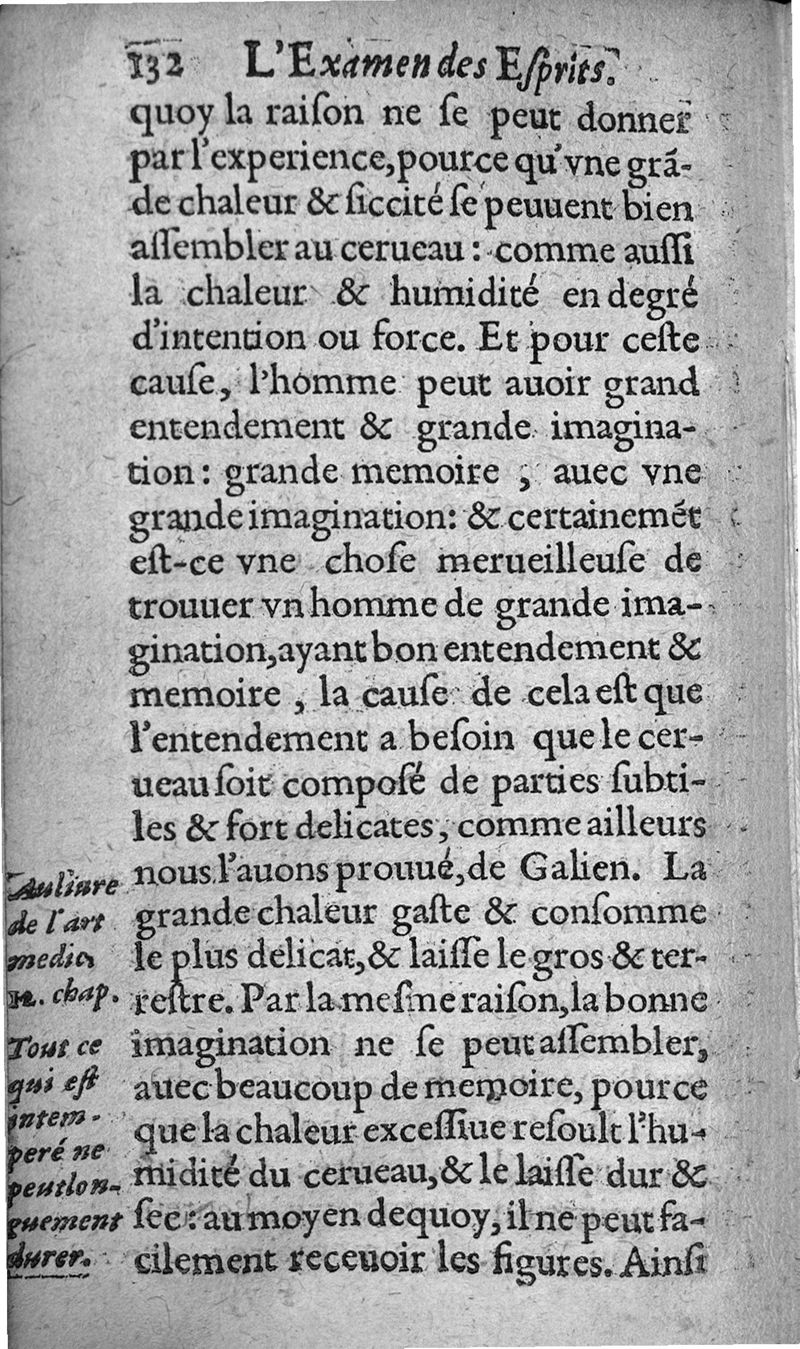 132 L'Examen des Eſprits.
quoy la raiſon ne ſe peut donner
par l'experience, pource qu'vne grã-
de chaleur & ſiccité ſe peuuent bien
aſſembler au cerueau : comme auſſi
la chaleur & humidité en degré
d'intention ou force. Et pour ceſte
cauſe, l'homme peut auoir grand
entendement & grande imagina-
tion : grande memoire , auec vne
grande imagination: & certainemét
eſt-ce vne choſe merueilleuſe de
trouuer vn homme de grande ima-
gination, ayant bon entendement &
memoire , la cauſe de cela eſt que
l'entendement a beſoin que le cer-
ueau ſoit compoſé de parties ſubti-
les & fort delicates, comme ailleurs
nous l'auons prouué, de Galien. La
grande chaleur gaſte & conſomme
le plus delicat, & laiſſe le gros & ter-
reſtre. Par la meſme raiſon, la bonne
imagination ne ſe peut aſſembler,
auec beaucoup de memoire, pource
que la chaleur exceſſiue reſoult l'hu-
midité du cerueau, & le laiſſe dur &
ſec : au moyen dequoy, il ne peut fa-
cilement receuoir les figures. Ainſi
Au liure
de l'art
medic.
12. chap.
Tout ce
qui eſt
intem-
peré ne
peut lon-
guement
durer.